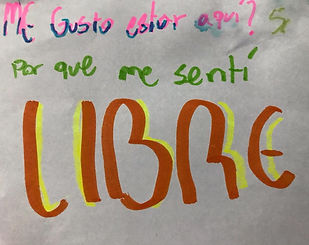 Me Gusto estar aquí? Si
Por que me sentí
LIBRE